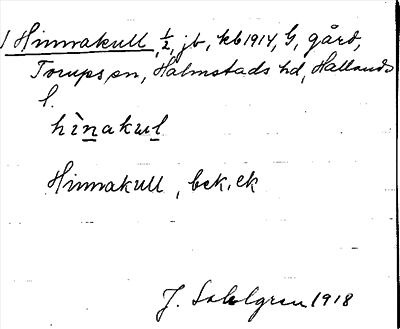 1 Hinnakull, ½, jb, kb 1914, G, gård,
Torups sn, Halmstads hd, Hallands
l.
hìnakul
Hinnakull, bek. ek
J. Sahlgren 1918